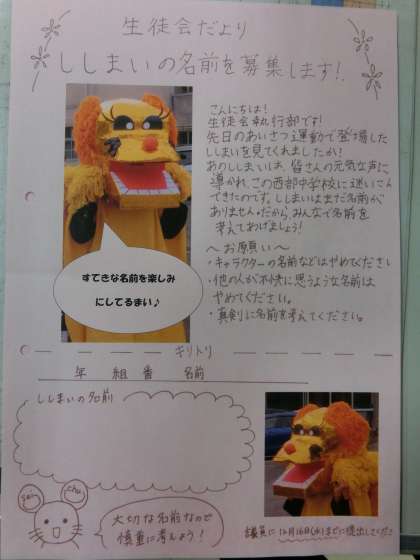 生徒会だより
ししまいの名前を募集します!
こんにちは!
生徒会執行部です!
先日のあいさつ運動で登場した
ししまいを見てくれましたか!
あのししまいは、皆さんの元気な声に
導かれ、この西部中学校に迷いこん
できたのです。ししまいはまだ名前が
ありません。だから、みんなで名前を
考えてあげましょう!
〜お願い〜
・キャラクターの名前などはやめてください
・他の人が不快に思うような名前は
やめてください。
・真剣に名前を考えてください。
すてきな名前を楽しみ
にしてるまい♪
キリトリ
年 組 番 名前
ししまいの名前
sen
chu
大切な名前なので
慎重に考えよう!
議員に12月16日(水)までに提出してください